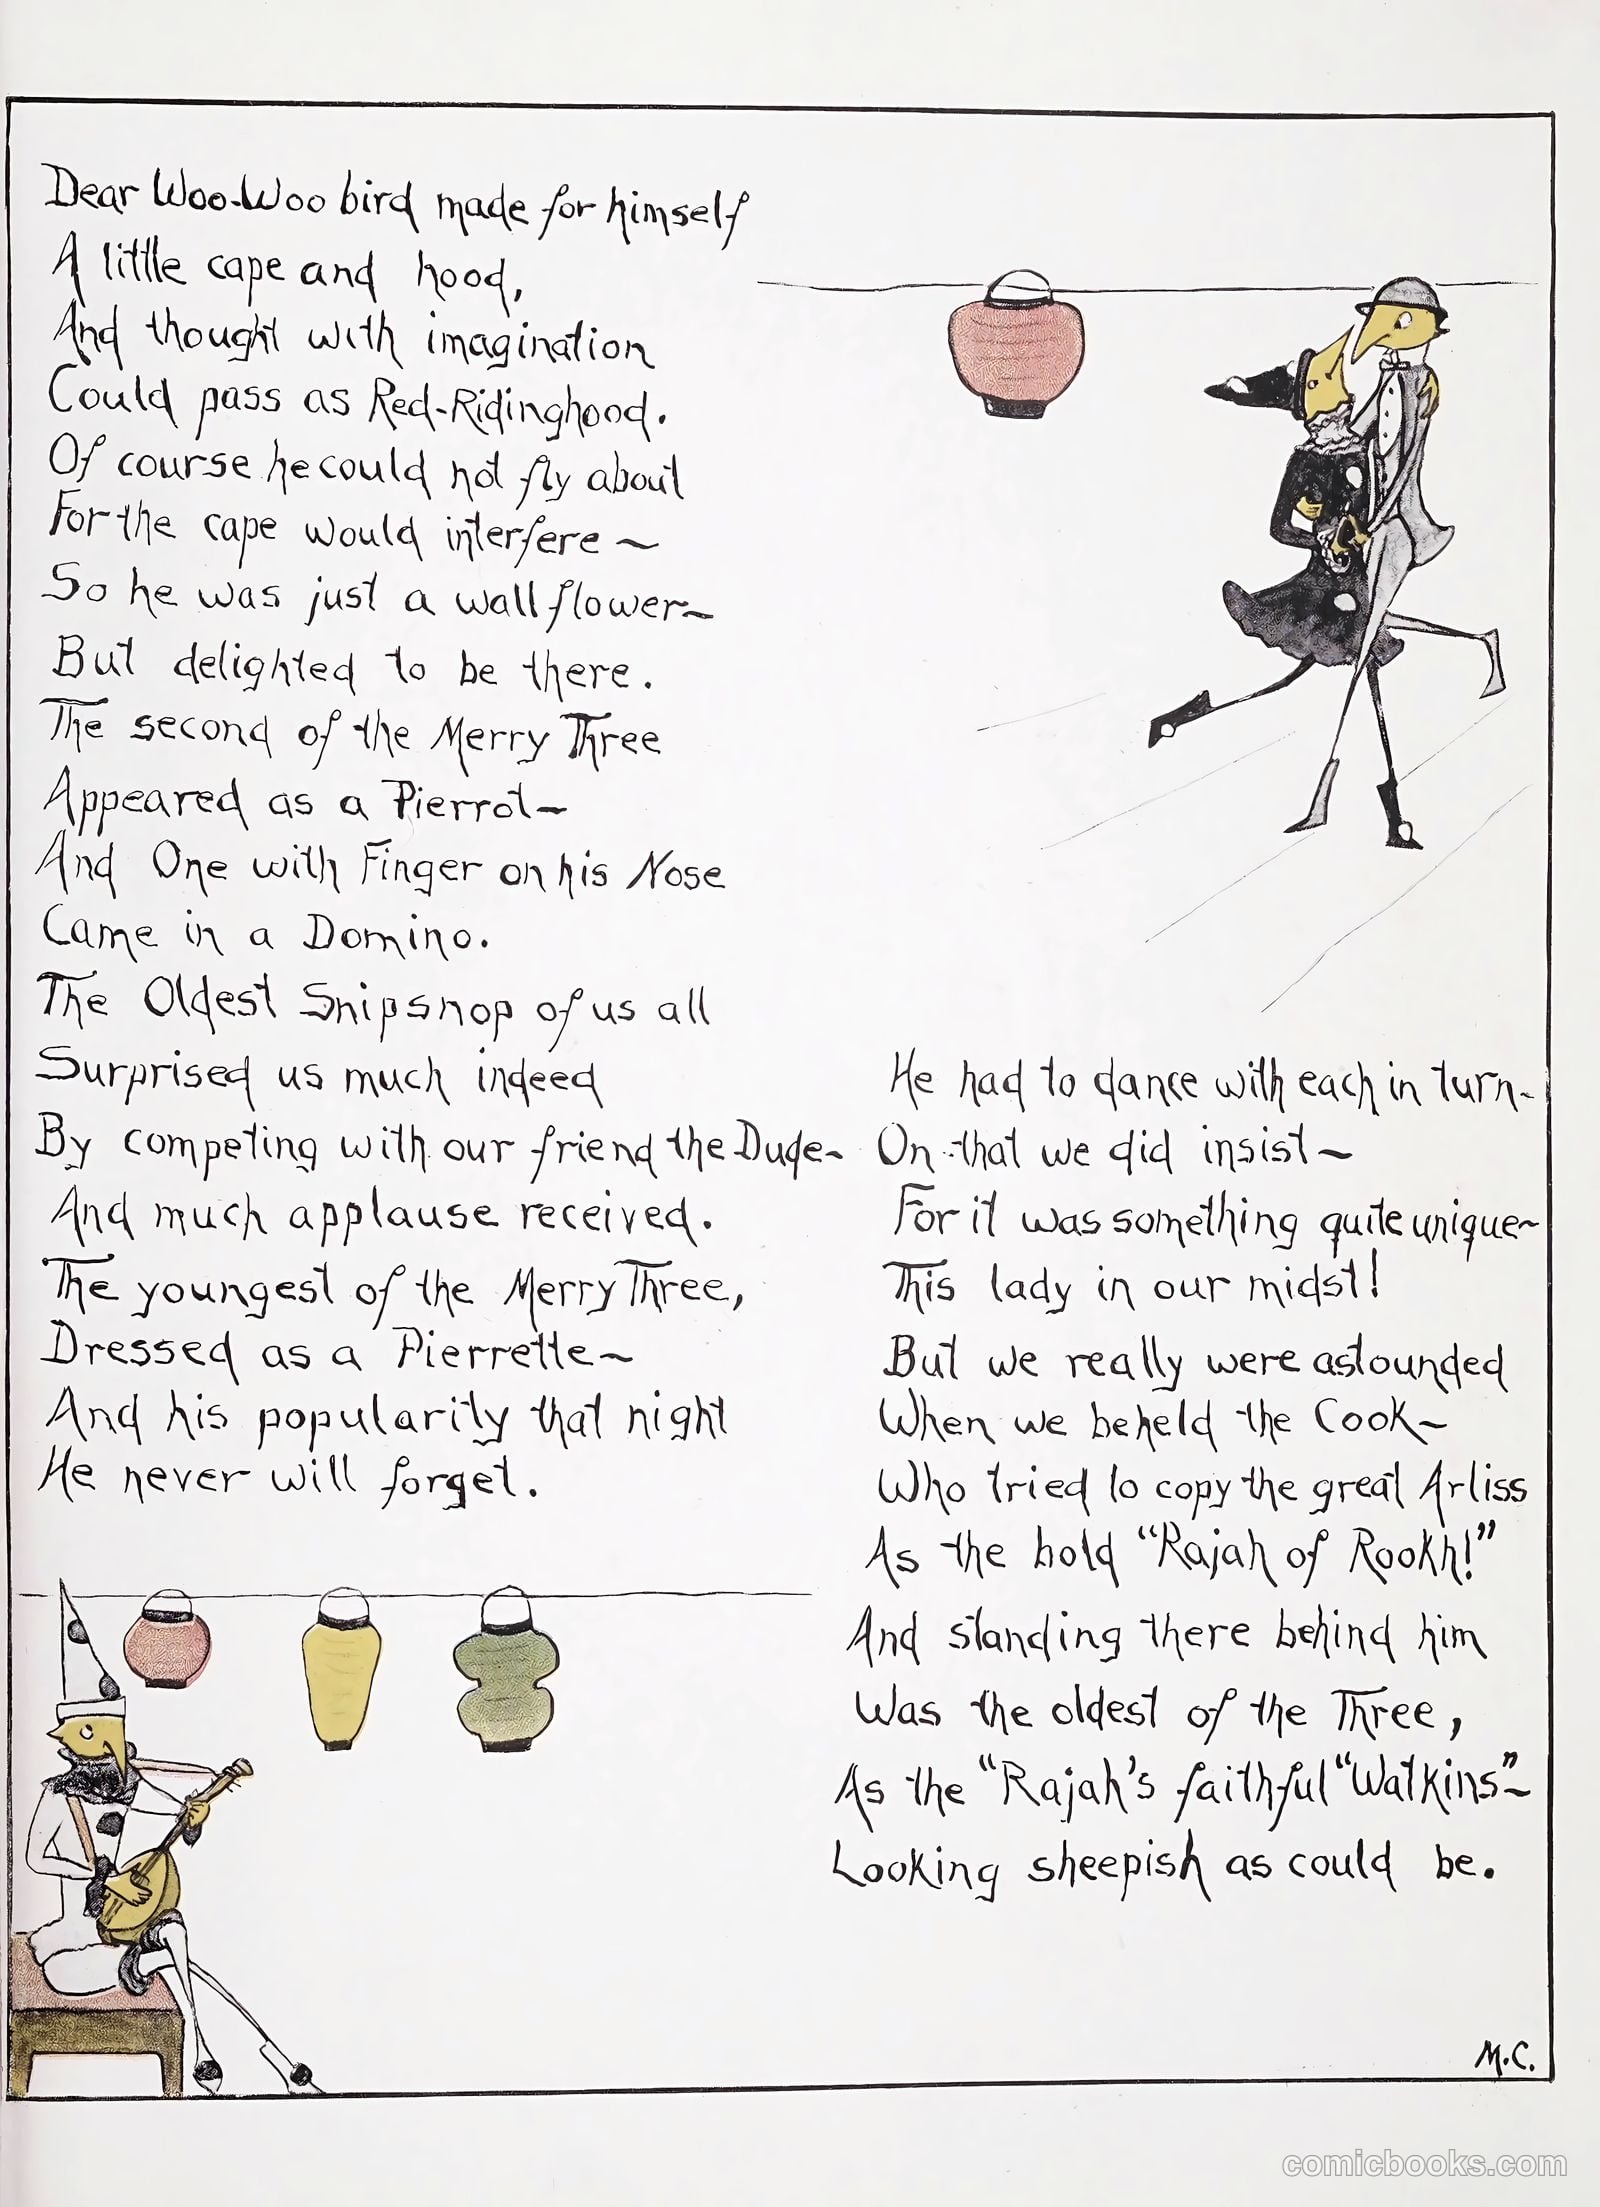 Dear Woo-Woo bird made for himself
A little cape and hood,
And thought with imagination
Could pass as Red-Ridinghood.
Of course he could not fly about
For the cape would interfere ~
So he was just a wall flower~
But delighted to be there.
The second of the Merry Three
Appeared as a Pierrot~
And One with Finger on his Nose
Came in a Domino.
The Oldest Snipsnop of us all
Surprised us much indeed
By competing with our friend the Dude~
And much applause received.
The youngest of the Merry Three,
Dressed as a Pierrette~
And his popularity that night
He never will forget.
He had to dance with each in turn~
On that we did insist~
For it was something quite unique~
This lady in our midst!
But we really were astounded
When we beheld the Cook~
Who tried to copy the great Arliss
As the bold "Rajah of Rookh!"
And standing there behind him
Was the oldest of the Three,
As the "Rajah's faithful "Watkins"~
Looking sheepish as could be.
M.C.
comicbooks.com